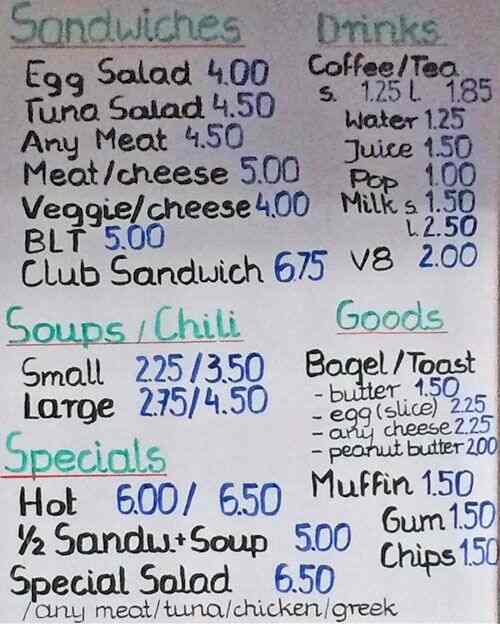 Sandwiches
Egg Salad 4.00
Tuna Salad 4.50
Any Meat 4.50
Meat/cheese 5.00
Veggie/cheese 4.00
BLT 5.00
Club Sandwich 6.75
Drinks
Coffee/Tea
s. 1.25 L. 1.85
Water 1.25
Juice 1.50
Pop 1.00
Milk s 1.50
L 2.50
V8 2.00
Soups/Chili
Small 2.25/3.50
Large 2.75/4.50
Goods
Bagel/Toast
- butter 1.50
- egg (slice) 2.25
- any cheese 2.25
- peanut butter 2.00
Muffin 1.50
Gum 1.50
Chips 1.50
Specials
Hot 6.00/ 6.50
½ Sandw.+Soup 5.00
Special Salad 6.50
/any meat/tuna/chicken/greek